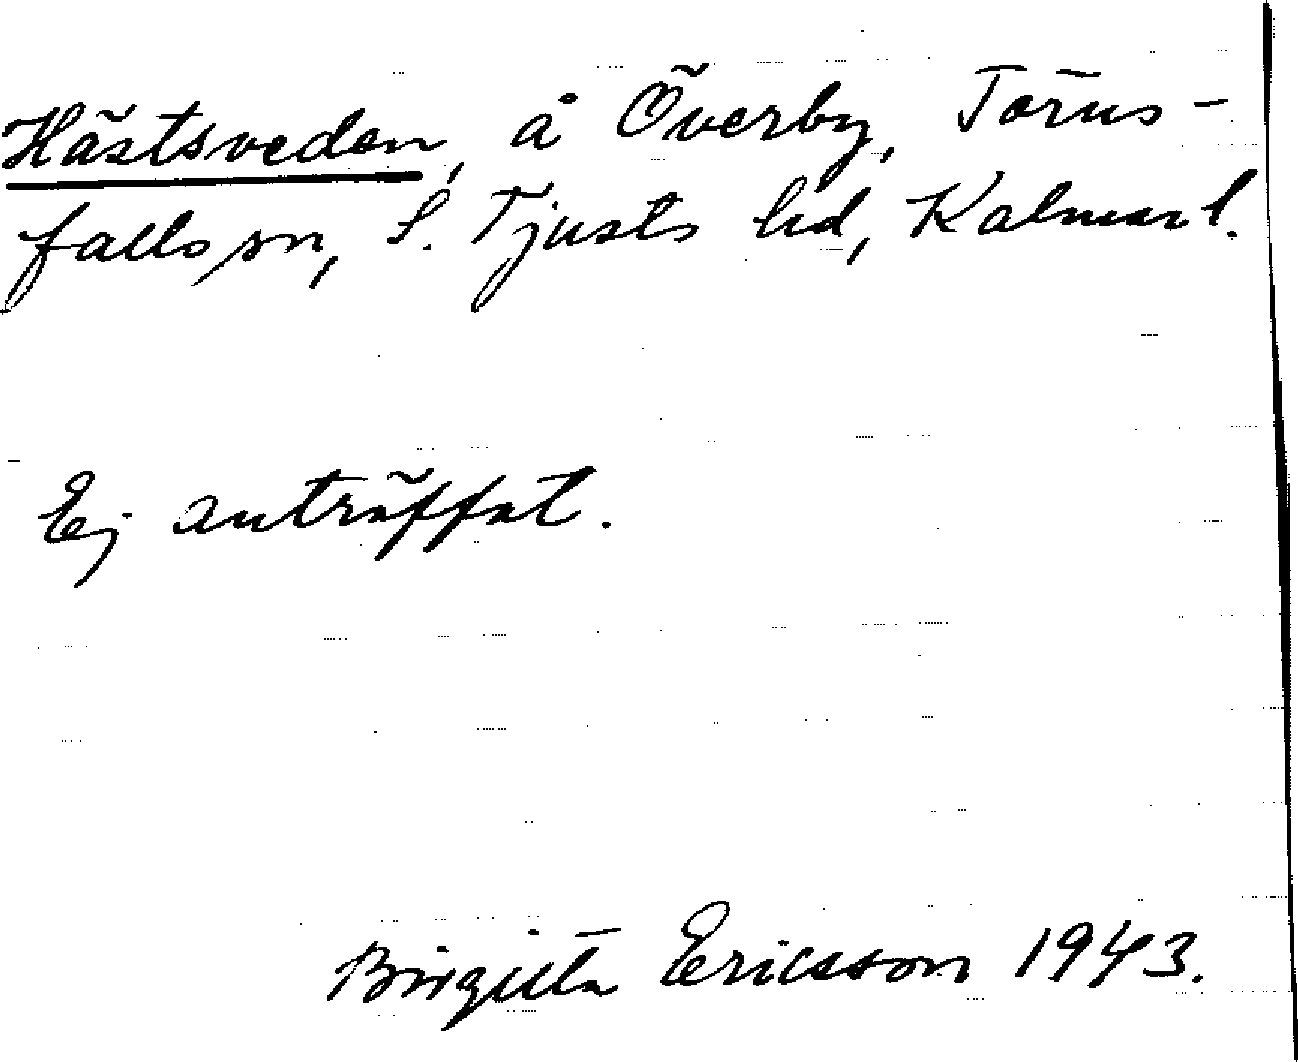 Hästsveden, å Överby, Törns-
falls sn, S. Tjusts hd, Kalmar l.
Ej anträffat.
Birgitta Ericsson 1943.